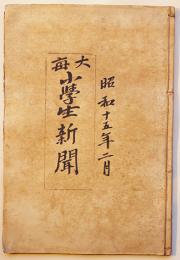 昭和十五年二月
大每
小學生新聞